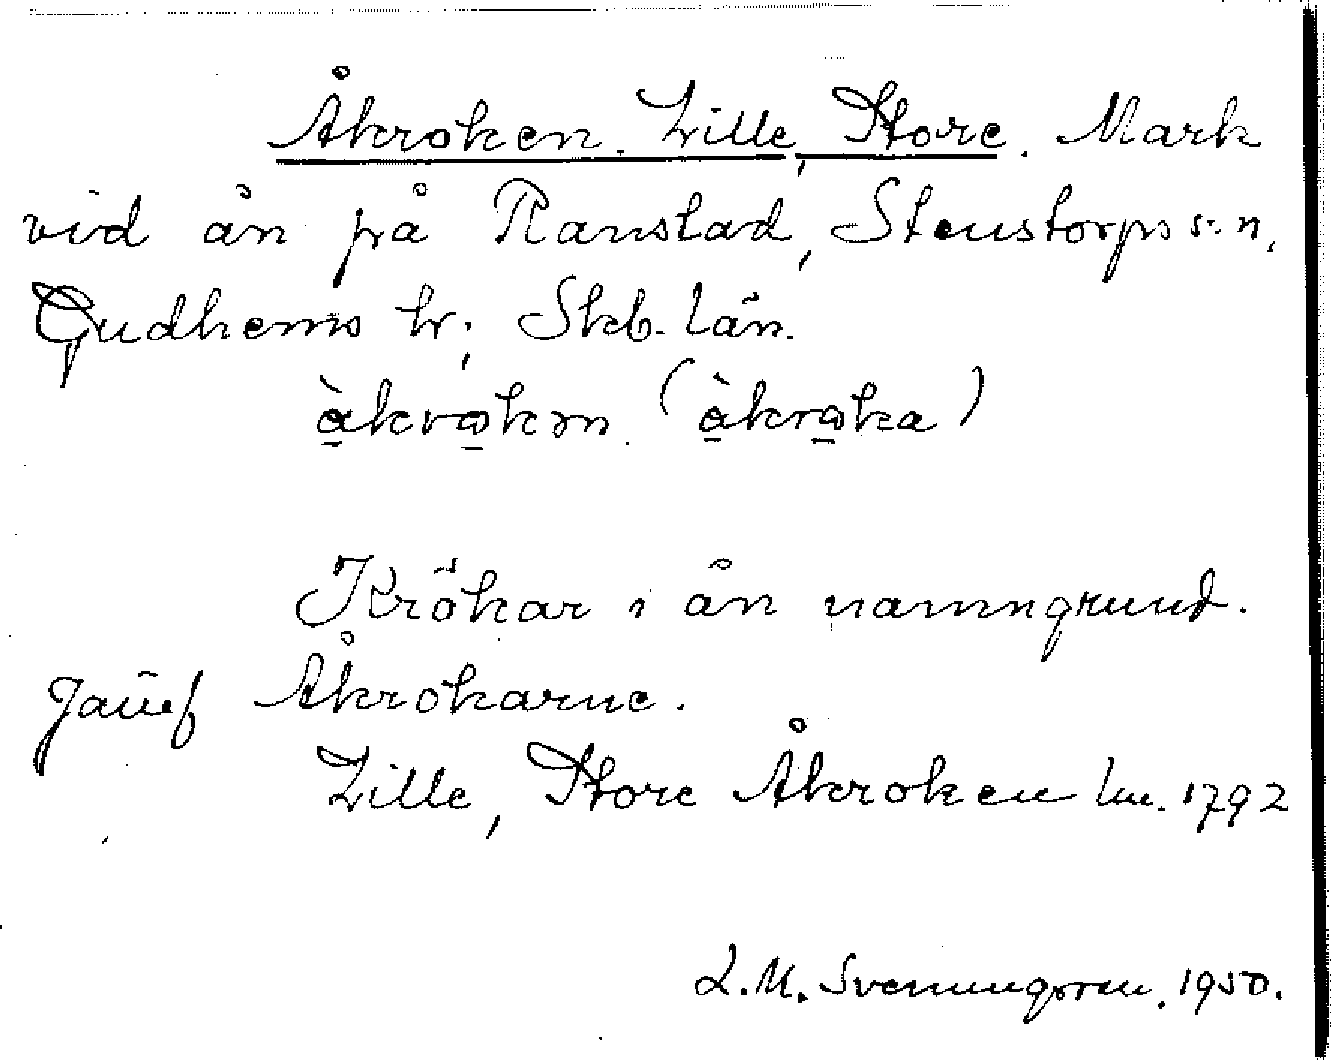 Åkroken. Lille, Store. Mark
vid ån på Ranstad, Stenstorps s:n,
Gudhems hr, Skb. län.
åkrokən (åkroka)
Krökar i ån namngrund.
Jämf Åkrokarne.
Lille, Store Åkroken lm. 1792
L.M. Svenungsson. 1950.